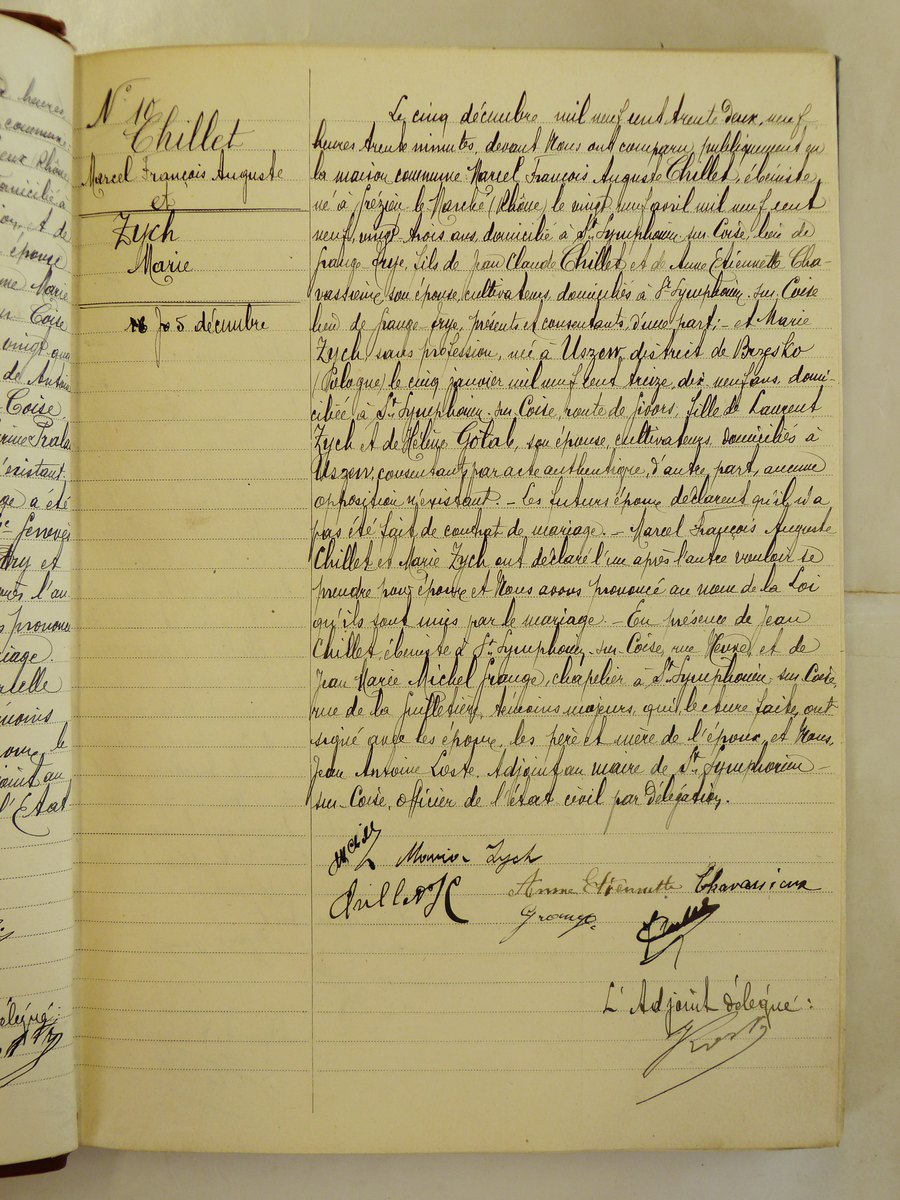 heures
commune
Rhône
domicilié à
et de
épouse
Marie
Coise
vingt
de Antoine
Coise
n'existant
ge a été
et
l'un
prononcé
mariage.
témoins
le
adjoint au
l'Etat
N° 10
Chillet
Marcel François Auguste
et
Zych
Marie
5 décembre
Le cinq décembre mil neuf cent trente deux, neuf
heures trente minutes, devant Nous ont comparu publiquement en
la maison commune Marcel François Auguste Chillet, ébéniste,
né à Grézieu-le-Marché (Rhône) le vingt neuf avril mil neuf cent
neuf, vingt trois ans, domicilié à St Symphorien sur Coise, lieu de
fils de Jean Claude Chillet et de Anne Etiennette Cha-
vassieux, son épouse, cultivateurs, domiciliés à St Symphorien sur Coise
lieu de présents et consentants, d'une part; - et Marie
Zych, sans profession, née à Uszew, district de Brzesko
(Pologne) le cinq janvier mil neuf cent treize, dix neuf ans, domi-
ciliée à St Symphorien sur Coise, route de Givors, fille de Laurent
Zych et de Hélène Golab, son épouse, cultivateurs, domiciliés à
Uszew, consentant par acte authentique, d'autre part, aucune
opposition n'existant. - Les futurs époux déclarent qu'il n'a
pas été fait de contrat de mariage. - Marcel François Auguste
Chillet et Marie Zych ont déclaré l'un après l'autre vouloir se
prendre pour époux et Nous avons prononcé au nom de la Loi
qu'ils sont unis par le mariage. - En présence de Jean
Chillet, ébéniste à St Symphorien sur Coise, rue et de
Jean Marie Michel Grange, chapelier à St Symphorien-sur-Coise,
rue de la témoins majeurs, qui, lecture faite, ont
signé avec les époux, les père et mère de l'époux et Nous,
Jean Antoine Loste, Adjoint au maire de St Symphorien-
sur-Coise, officier de l'état civil par délégation.
Zych
Chillet
Anne Etiennette Chavassieux
Grange
L'Adjoint délégué: